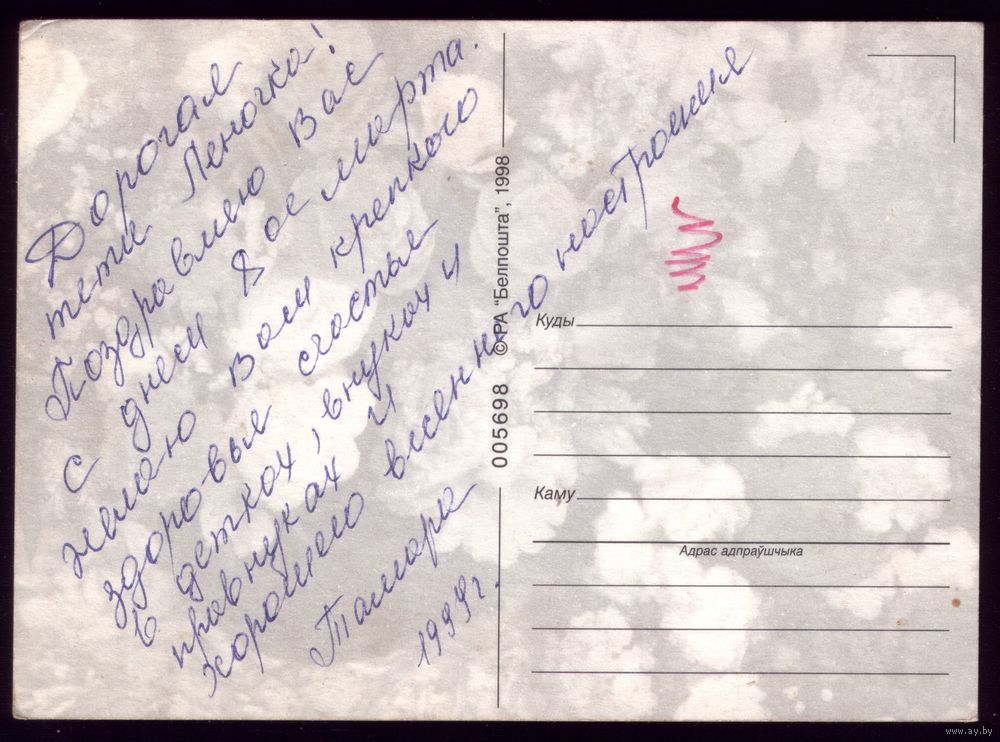 Дорогая
тетя Леночка!
Поздравляю Вас
с днем 8ое марта.
желаю Вам крепкого
здоровья счастья
в детках, внуках и
правнуках и
хорошего весеннего настроения
Тамара
1999г.
005698 © РА “Белпошта”, 1998
Куды
Каму
Адрас адпраўшчыка
www.ay.by